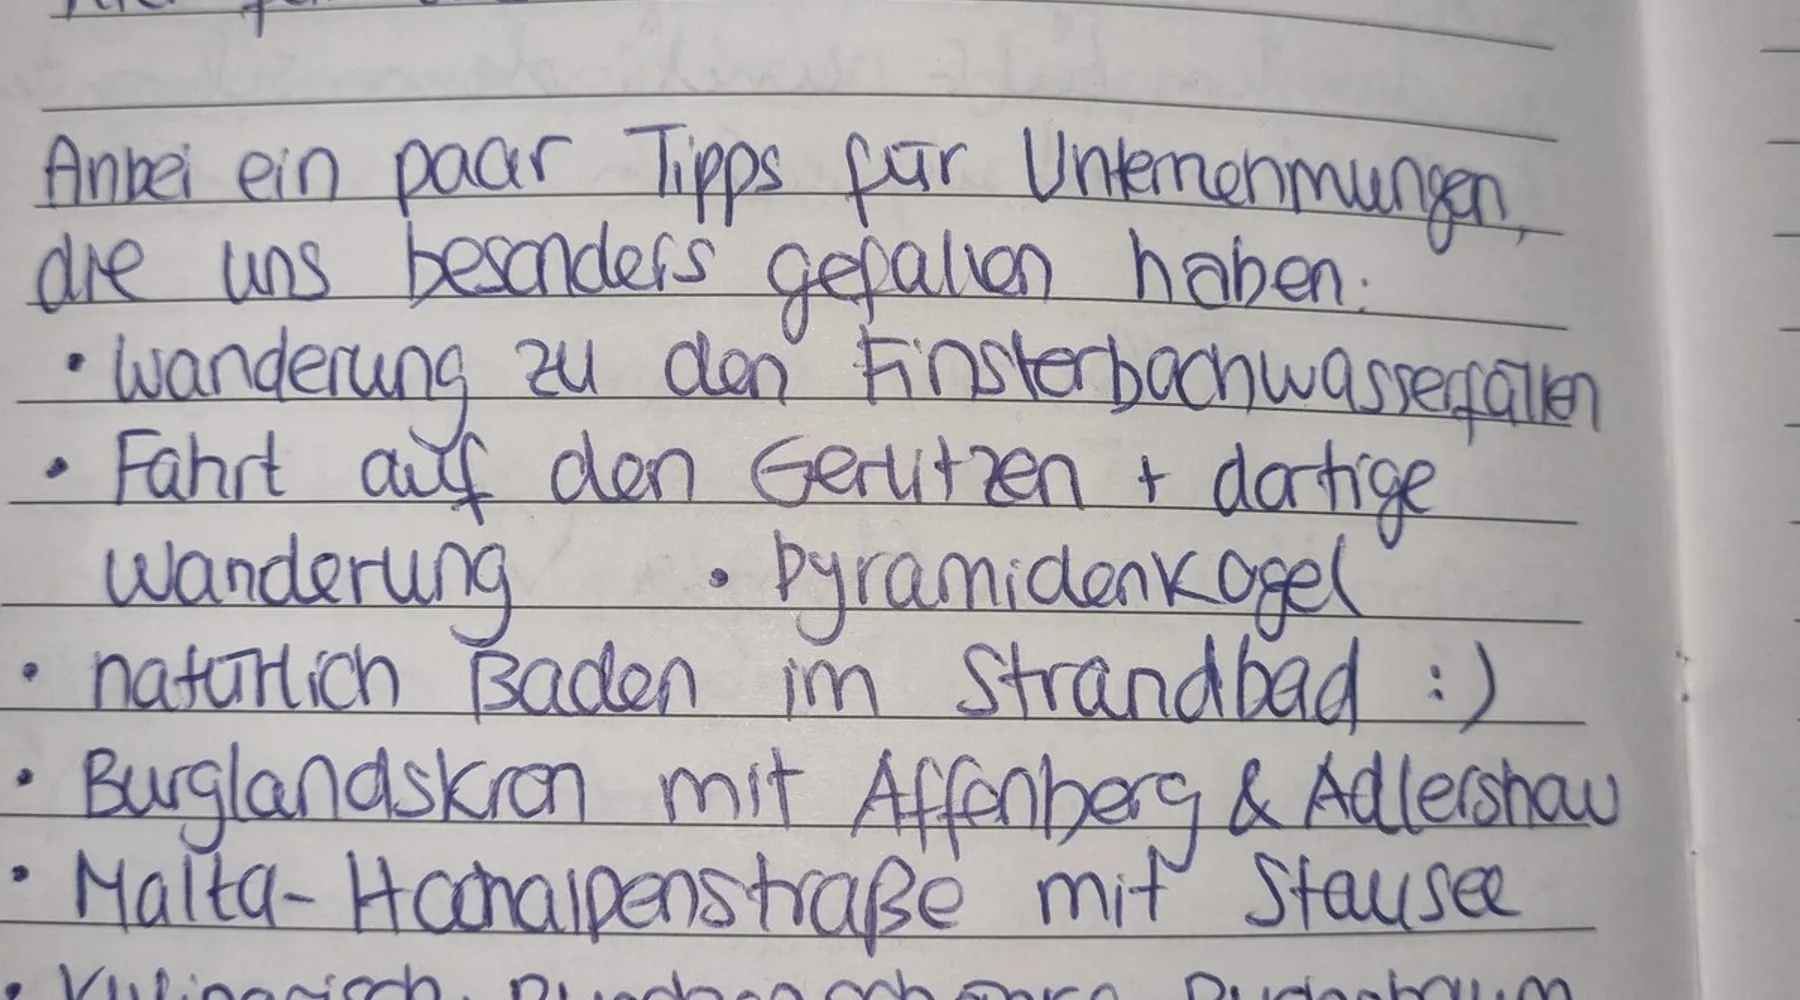 Anbei ein paar Tipps für Unternehmungen,
die uns besonders gefallen haben:
• Wanderung zu den Finsterbachwasserfällen
• Fahrt auf den Gerlitzen + dortige
Wanderung • Pyramidenkogel
• natürlich Baden im Strandbad :)
• Burglandskron mit Affenberg & Adlershow
• Malta-Hochalpenstraße mit Stausee
• Kulinarisch